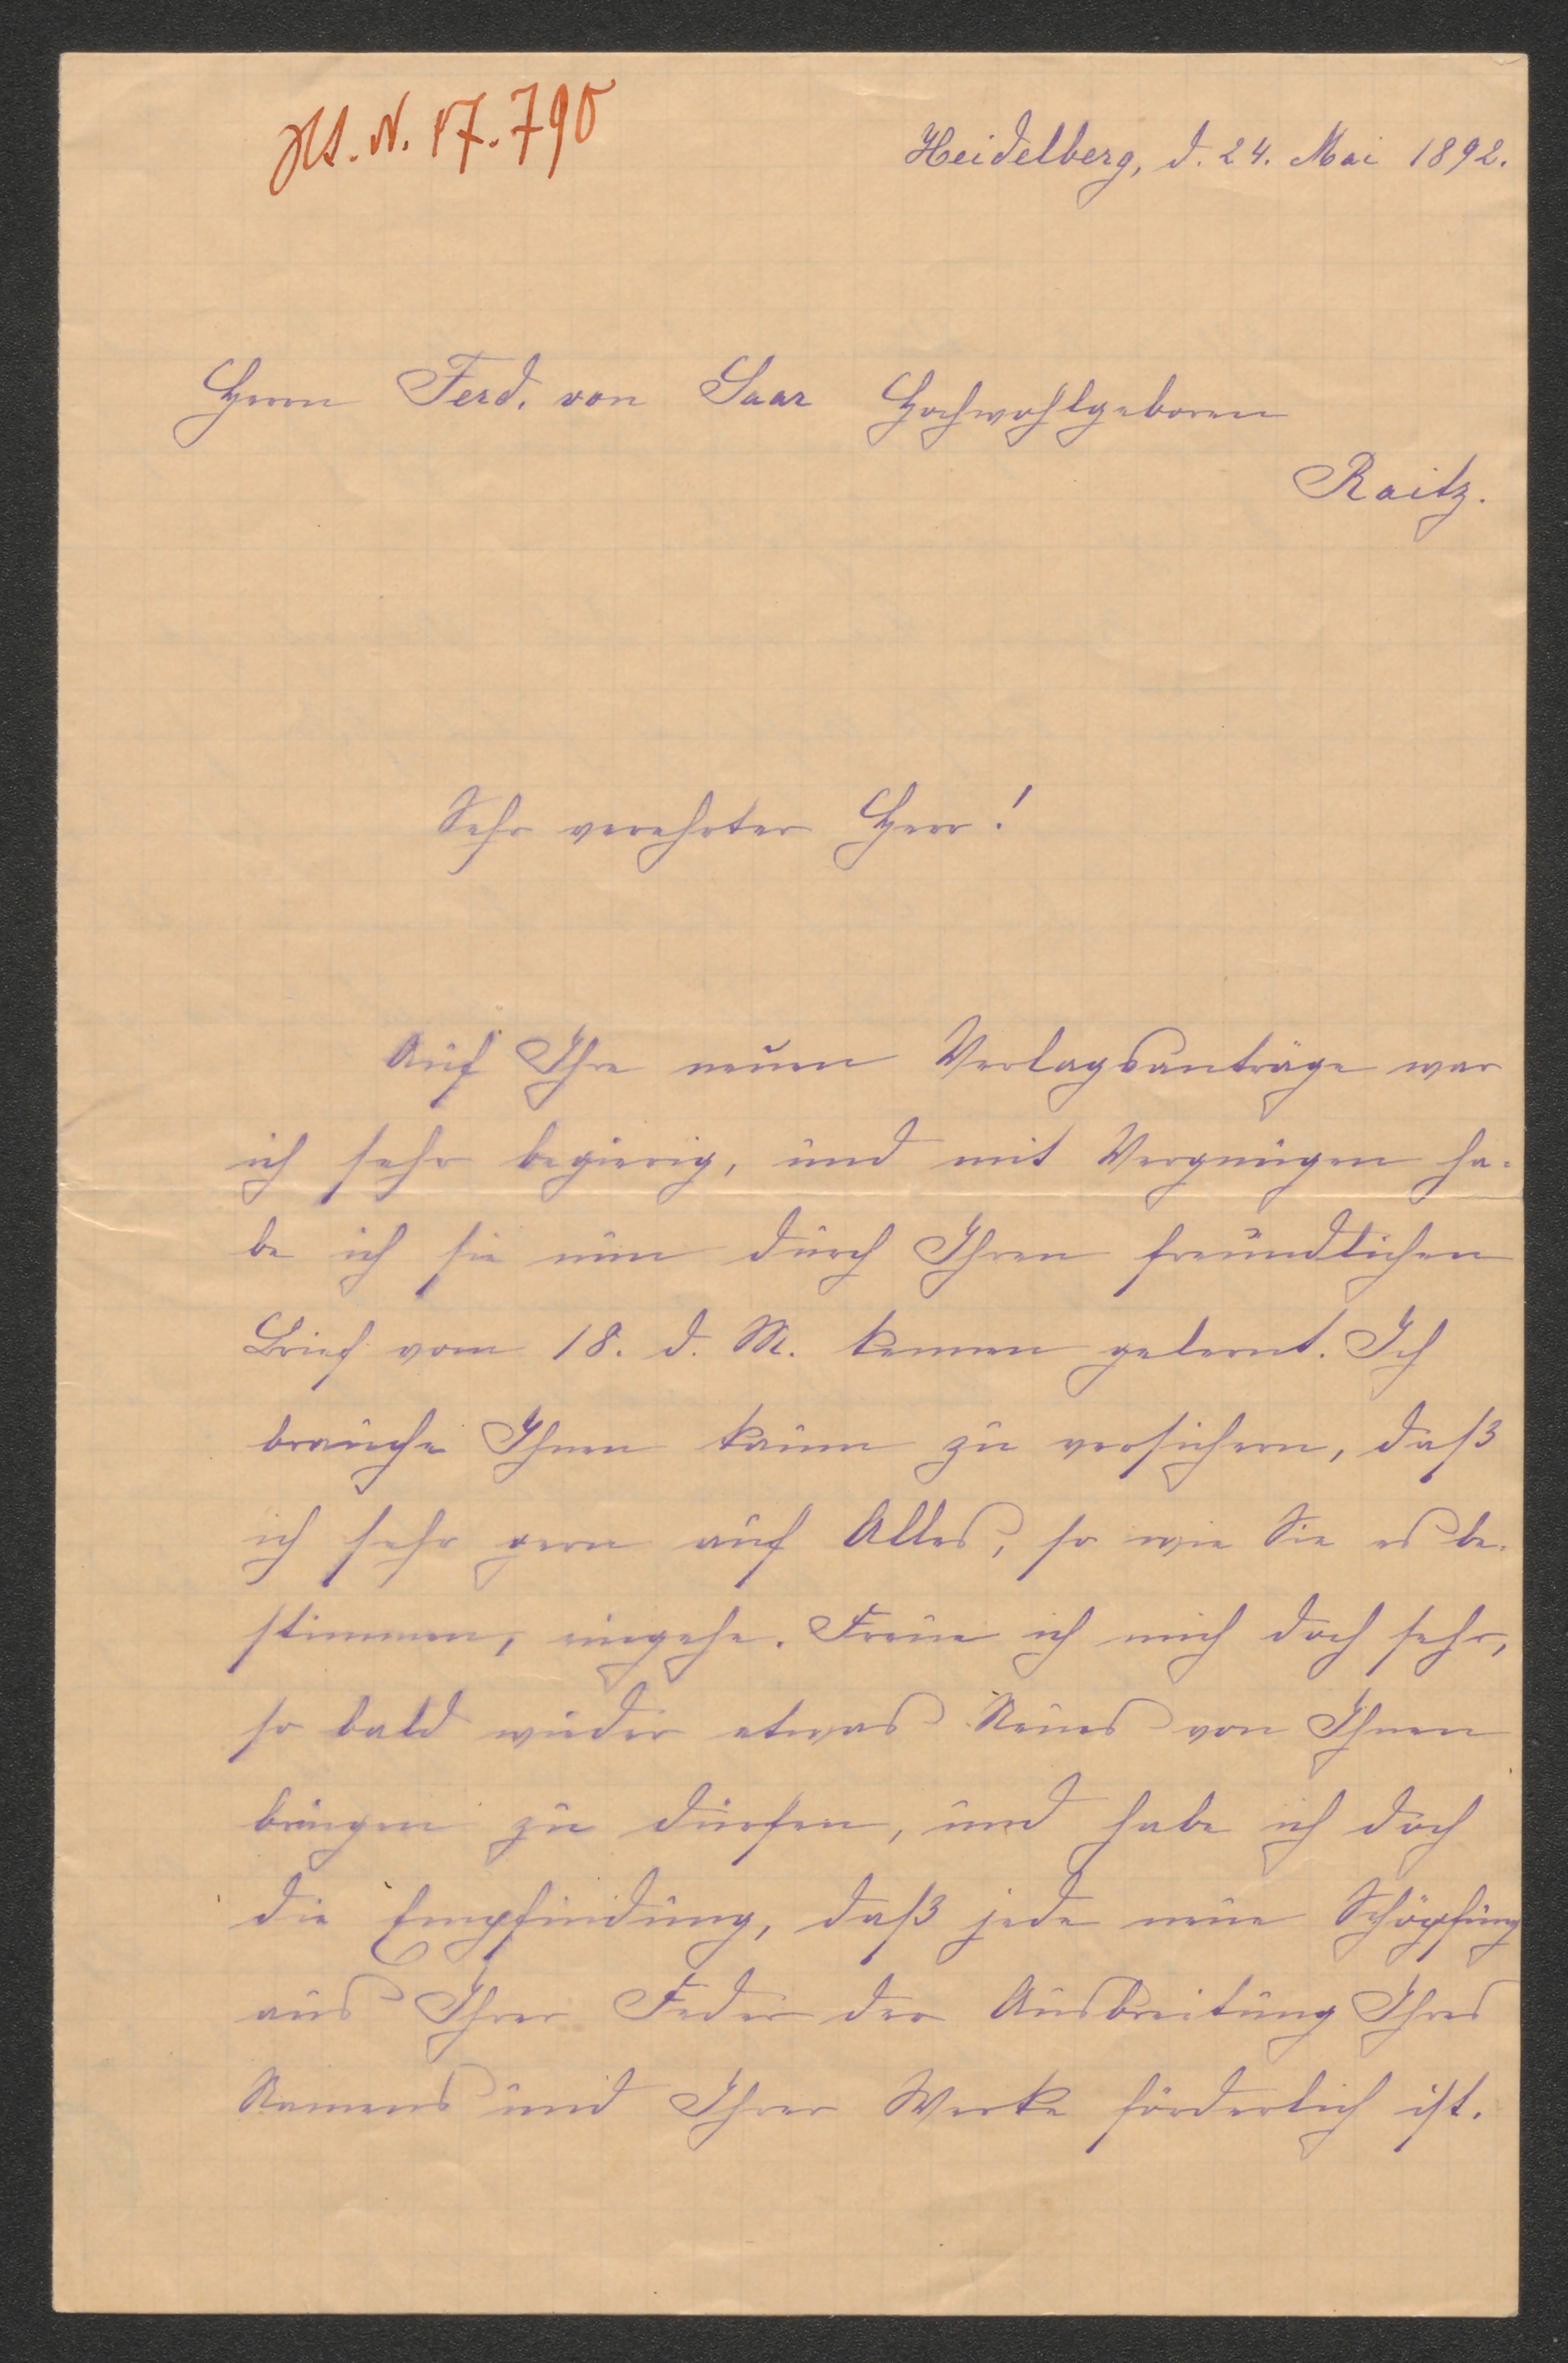 Hs. N. 17.790
Heidelberg, d. 24. Mai 1892.
Herrn Ferd. von Saar Hochwohlgeboren
Raitz.
Sehr verehrter Herr!
Auf Ihre neuen Verlagsanträge war
ich sehr begierig, und mit Vergnügen ha-
be ich sie nun durch Ihren freundlichen
Brief vom 18. d. M. kennen gelernt. Ich
brauche Ihnen kaum zu versichern, daß
ich sehr gern auf Alles, so wie Sie es be-
stimmen, eingehe. Freue ich mich doch sehr,
so bald wieder etwas Neues von Ihnen
bringen zu dürfen, und habe ich doch
die Empfindung, daß jede neue Schöpfung
aus Ihrer Feder der Ausbreitung Ihres
Namens und Ihrer Werke förderlich ist.